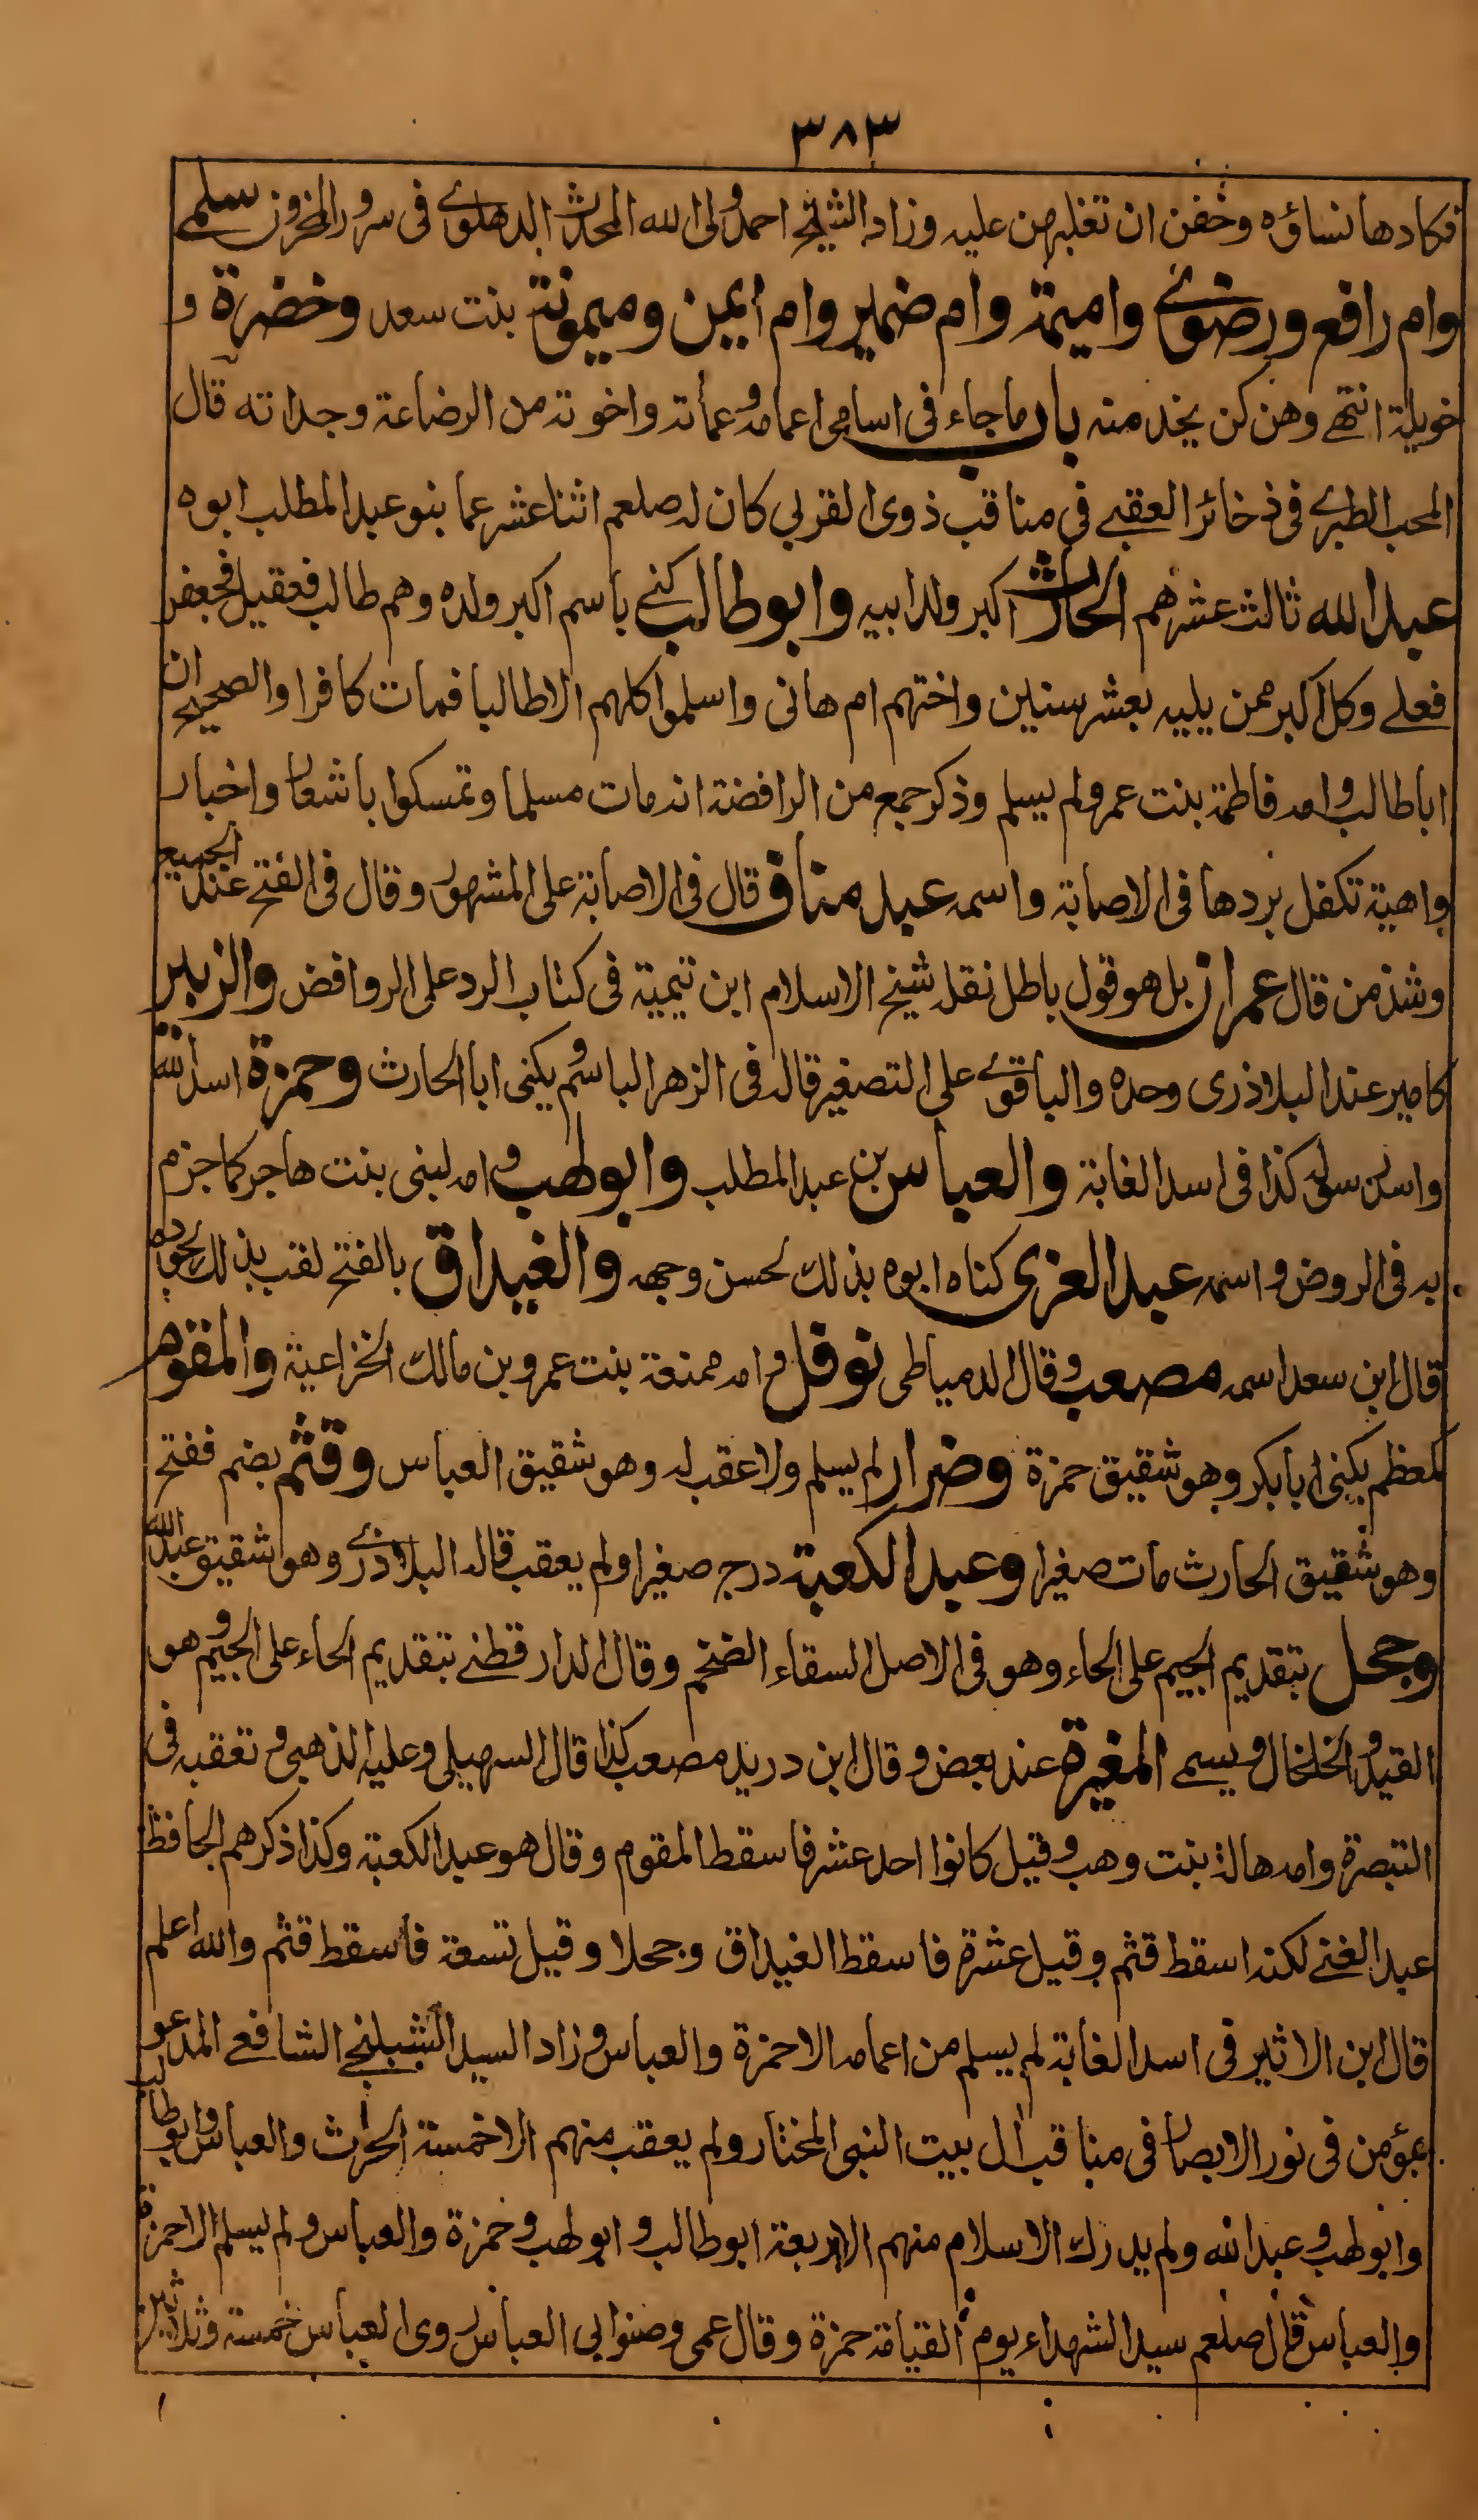 ٣٨٣
فكادها نساؤه وخفن ان تغلبهن عليه وزاد الشيخ احمد ولى الله المحدث الدهلوى فى سرور المحزون سلمى
وام رافع ورضوى واميمة وام ضمير وام ايمن وميمونة بنت سعد وخضرة و
خويلة انتهى وهن كن يخدمنه باب ما جاء فى اسامى اعمامه وعماته واخوته من الرضاعة وجداته قال
المحب الطبرى فى ذخائر العقبى فى مناقب ذوى القربى كان له صلعم اثنا عشر عما بنو عبد المطلب ابوه
عبد الله ثالث عشرهم الحارث اكبر ولد ابيه وابو طالب كنى باسم اكبر ولده وهم طالب فعقيل فجعفر
فعلى وكل اكبر ممن يليه بعشر سنين واختهم ام هانى واسلموا كلهم الا طالبا فمات كافرا والصحيح ان
ابا طالب وامه فاطمة بنت عمرو لم يسلم وذكر جمع من الرافضة انه مات مسلما وتمسكوا باشعار واخبار
واهية تكفل بردها فى الاصابة واسمه عبد مناف قال فى الاصابة على المشهور وقال فى الفتح عند الجميع
وشذ من قال عمران بل هو قول باطل نقله شيخ الاسلام ابن تيمية فى كتاب الرد على الروافض والزبير
كامير عند البلاذرى وحده والباقون على التصغير قاله فى الزهر الباسم ويكنى ابا الحارث وحمزة اسد الله
واسد رسوله كذا فى اسد الغابة والعباس بن عبد المطلب وابو لهب وامه لبنى بنت هاجر كما جزم
به فى الروض واسمه عبد العزى كناه ابوه بذلك لحسن وجهه والغيداق بالفتح لقب بذلك لجوده
قال ابن سعد اسمه مصعب وقال الدمياطى نوفل وامه ممنعة بنت عمرو بن مالك الخزاعية والمقوم
كمعظم يكنى ابا بكر وهو شقيق حمزة وضرار لم يسلم ولا عقب له وهو شقيق العباس وقثم بضم ففتح
وهو شقيق الحارث مات صغيرا وعبد الكعبة درج صغيرا ولم يعقب قاله البلاذرى وهو شقيق عبد الله
وجحل بتقديم الجيم على الحاء وهو فى الاصل السقاء الضخم وقال الدارقطنى بتقديم الحاء على الجيم وهو
القيد والخلخال ويسمى المغيرة عند بعض وقال ابن دريد مصعب كذا قال السهيلى وعليه الذهبى وتعقبه فى
التبصرة وامه هالة بنت وهب وقيل كانوا احد عشر فاسقط المقوم وقال هو عبد الكعبة وكذا ذكرهم الحافظ
عبد الغنى لكنه اسقط قثم وقيل عشرة فاسقط الغيداق وجحلا وقيل تسعة فاسقط قثم والله اعلم
قال ابن الاثير فى اسد الغابة لم يسلم من اعمامه الا حمزة والعباس وزاد السيد الشبلنجى الشافعى المدعو
بمؤمن فى نور الابصار فى مناقب ال بيت النبى المختار ولم يعقب منهم الا خمسة الحرث والعباس وابو طالب
وابو لهب وعبد الله ولم يدرك الاسلام منهم الا اربعة ابو طالب وابو لهب وحمزة والعباس ولم يسلم الا حمزة
والعباس قال صلعم سيد الشهداء يوم القيامة حمزة وقال عمى وصنو ابى العباس روى العباس خمسة وثلاثين